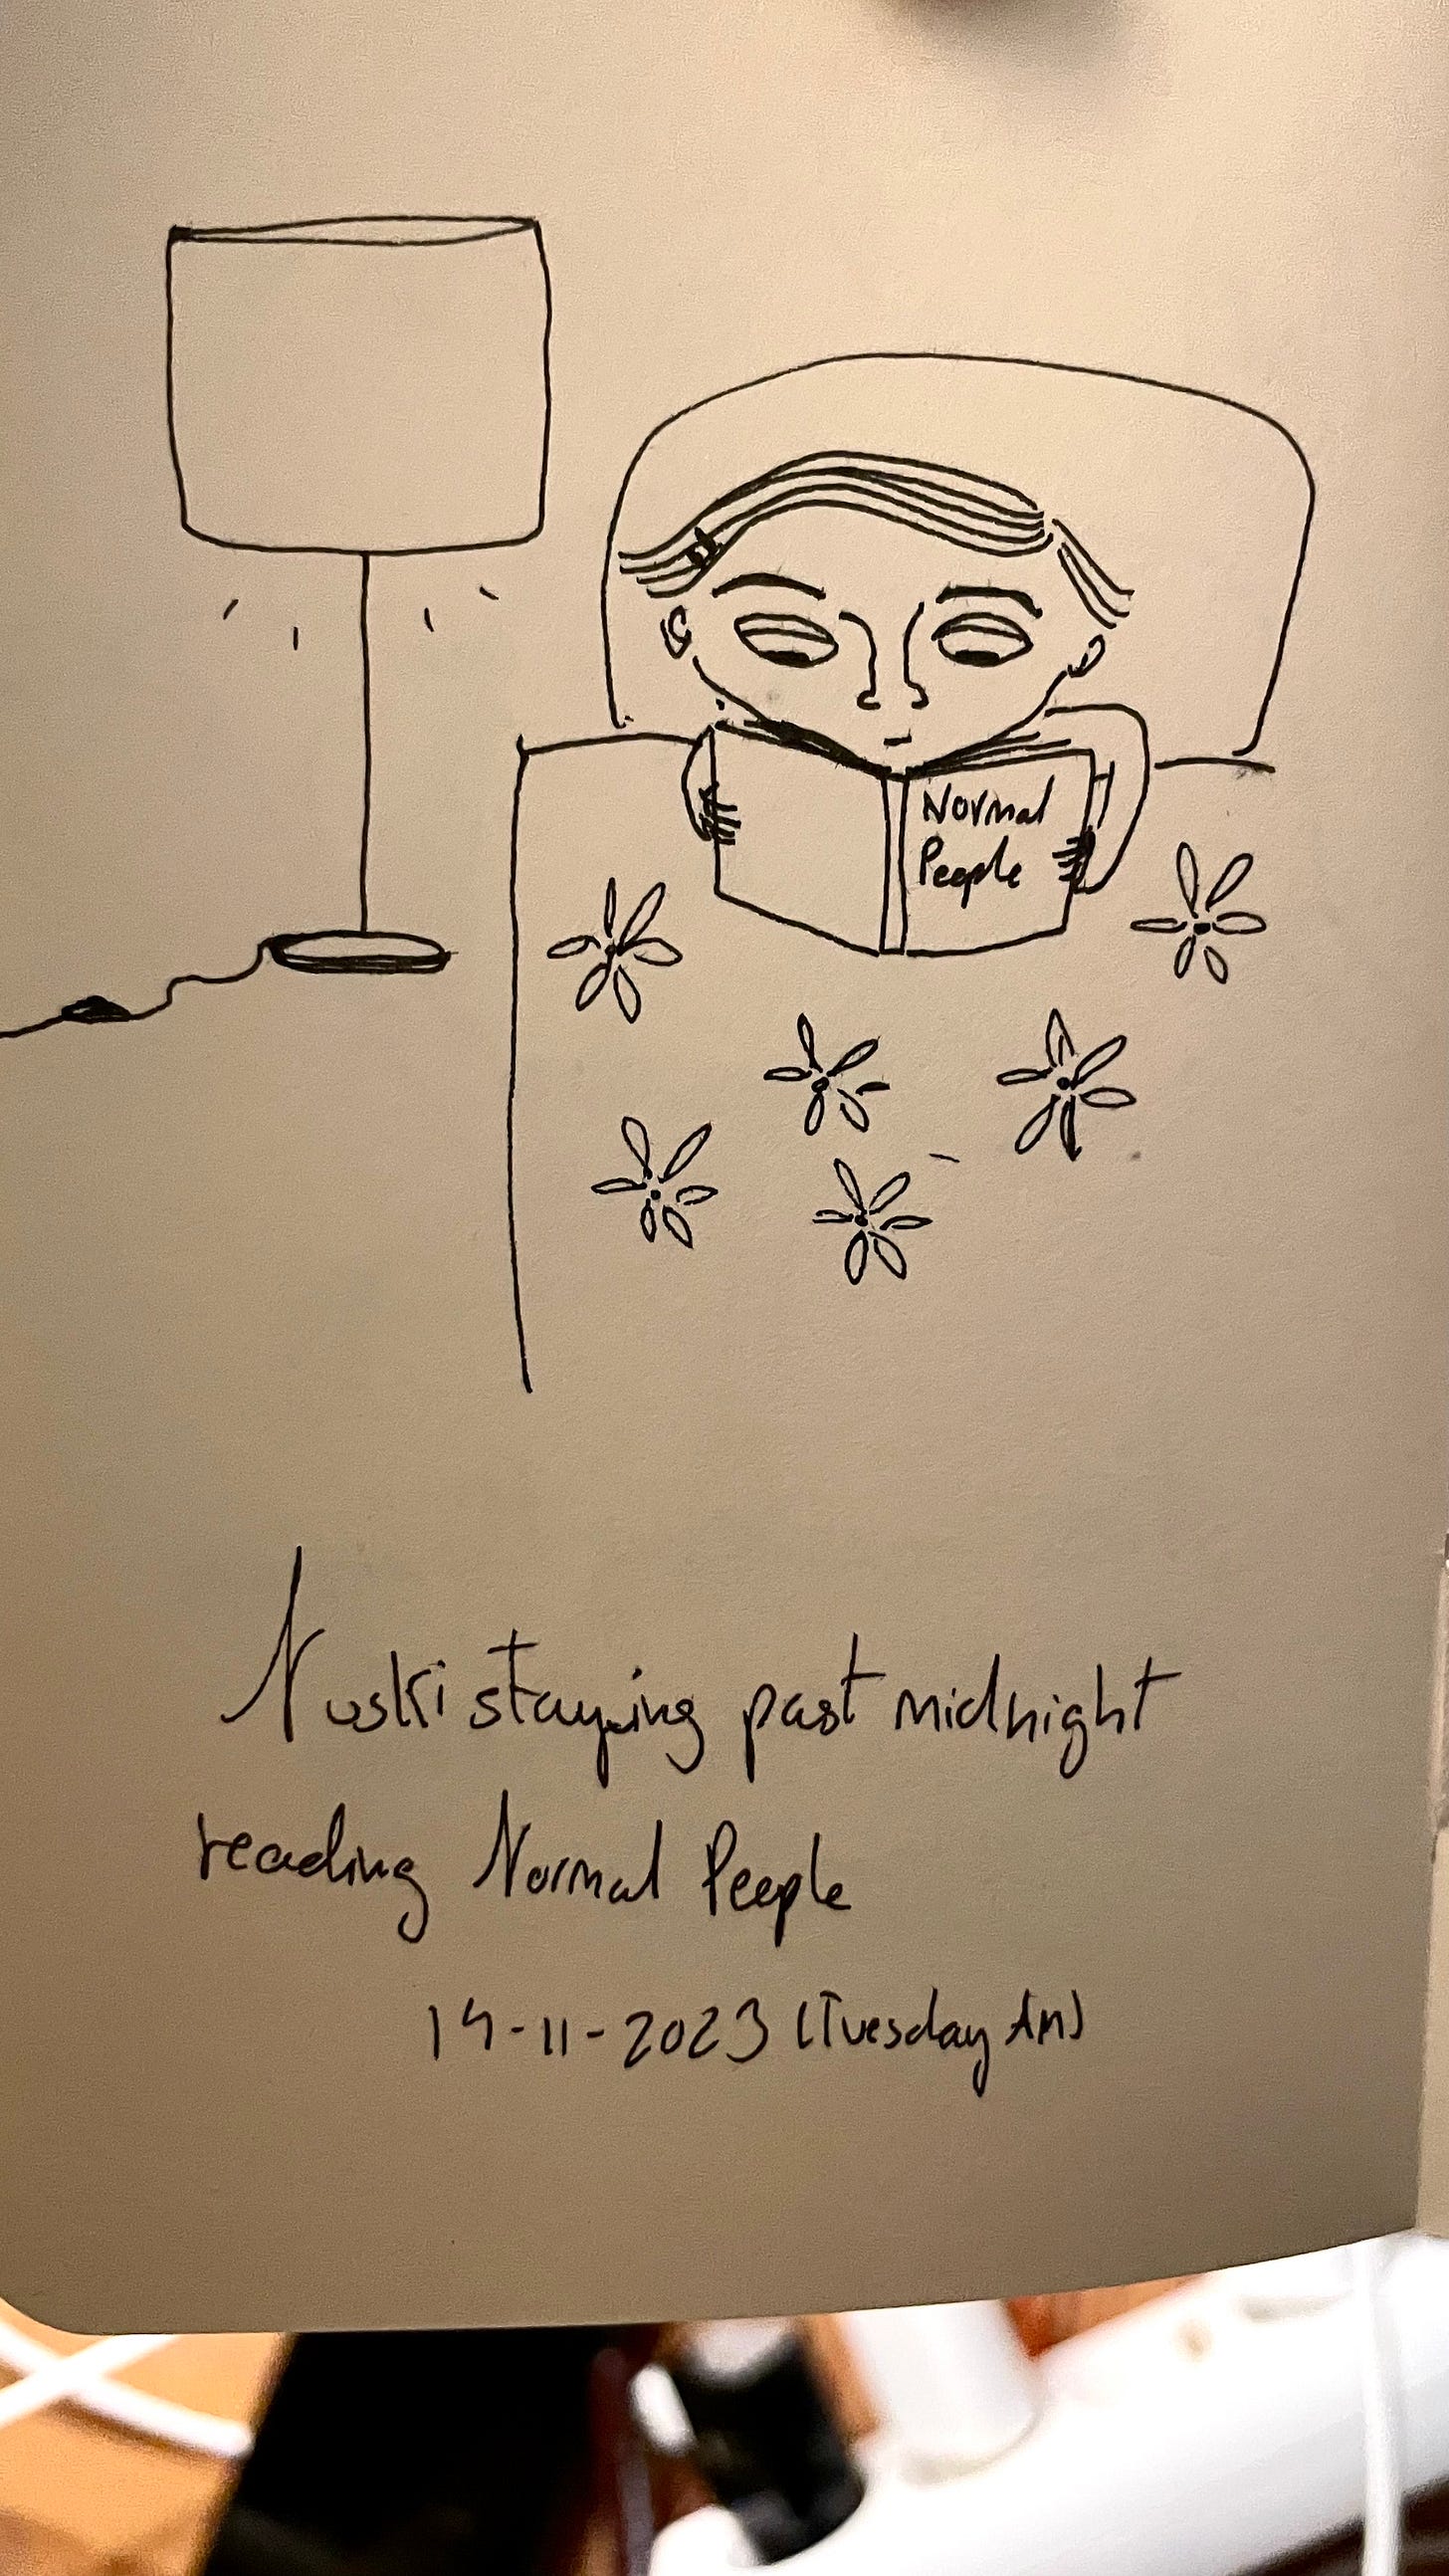 Normal
People
Nuski staying past midnight
reading Normal People
14-11-2023 (Tuesday AM)